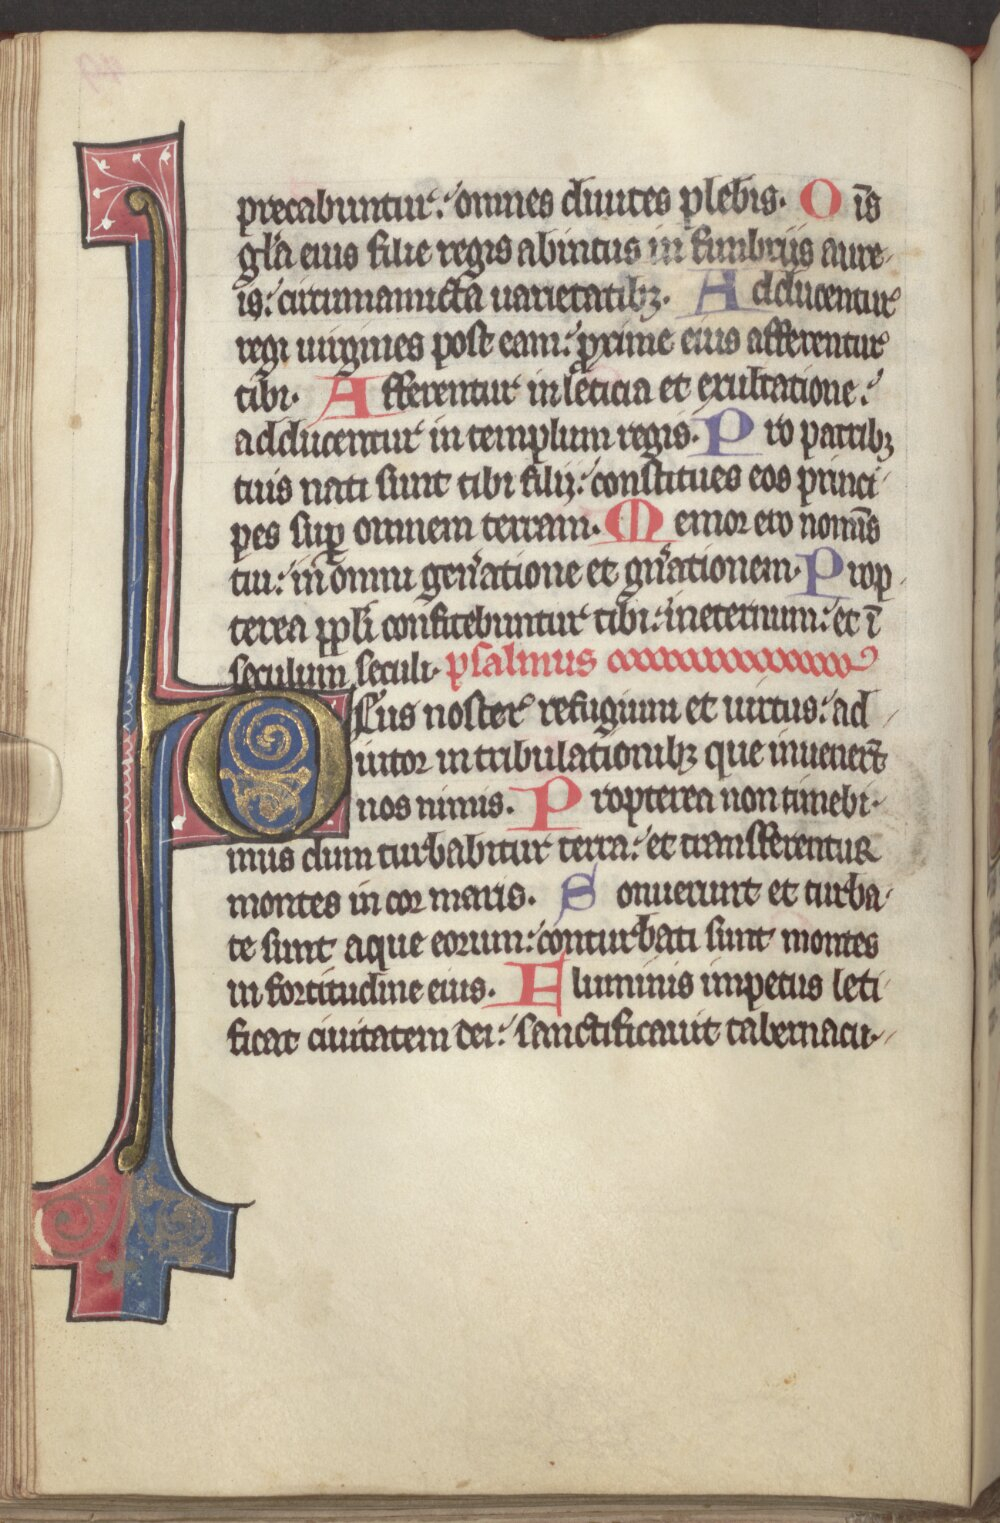 precabuntur: omnes diuites plebis. O īs
gl̄a eius filie regis abintus in fimbriis aure
is: circumamicta uarietatibꝫ. Adducentur
regi uirgines post eam: ꝓxime eius afferentur
tibi. Afferentur in leticia et exultatione:
adducentur in templum regis. Pro patribꝫ
tuis nati sunt tibi filij: constitues eos princi
pes suꝑ omnem terram. Memor ero nom̄s
tui: in omni gen̄atione et gn̄ationem. Prop
terea ppl̄i confitebuntur tibi: ineternum: et ī
seculum seculi. psalmus
DEus noster refugium et uirtus: ad
iutor in tribulationibꝫ que inuener̄t
nos nimis. Propterea non timebi
mus dum turbabitur terra: et transferentur
montes in cor maris. Sonuerunt et turba
te sunt aque eorum: conturbati sunt montes
in fortitudine eius. Fluminis impetus leti
ficat ciuitatem dei: sanctificauit tabernacu